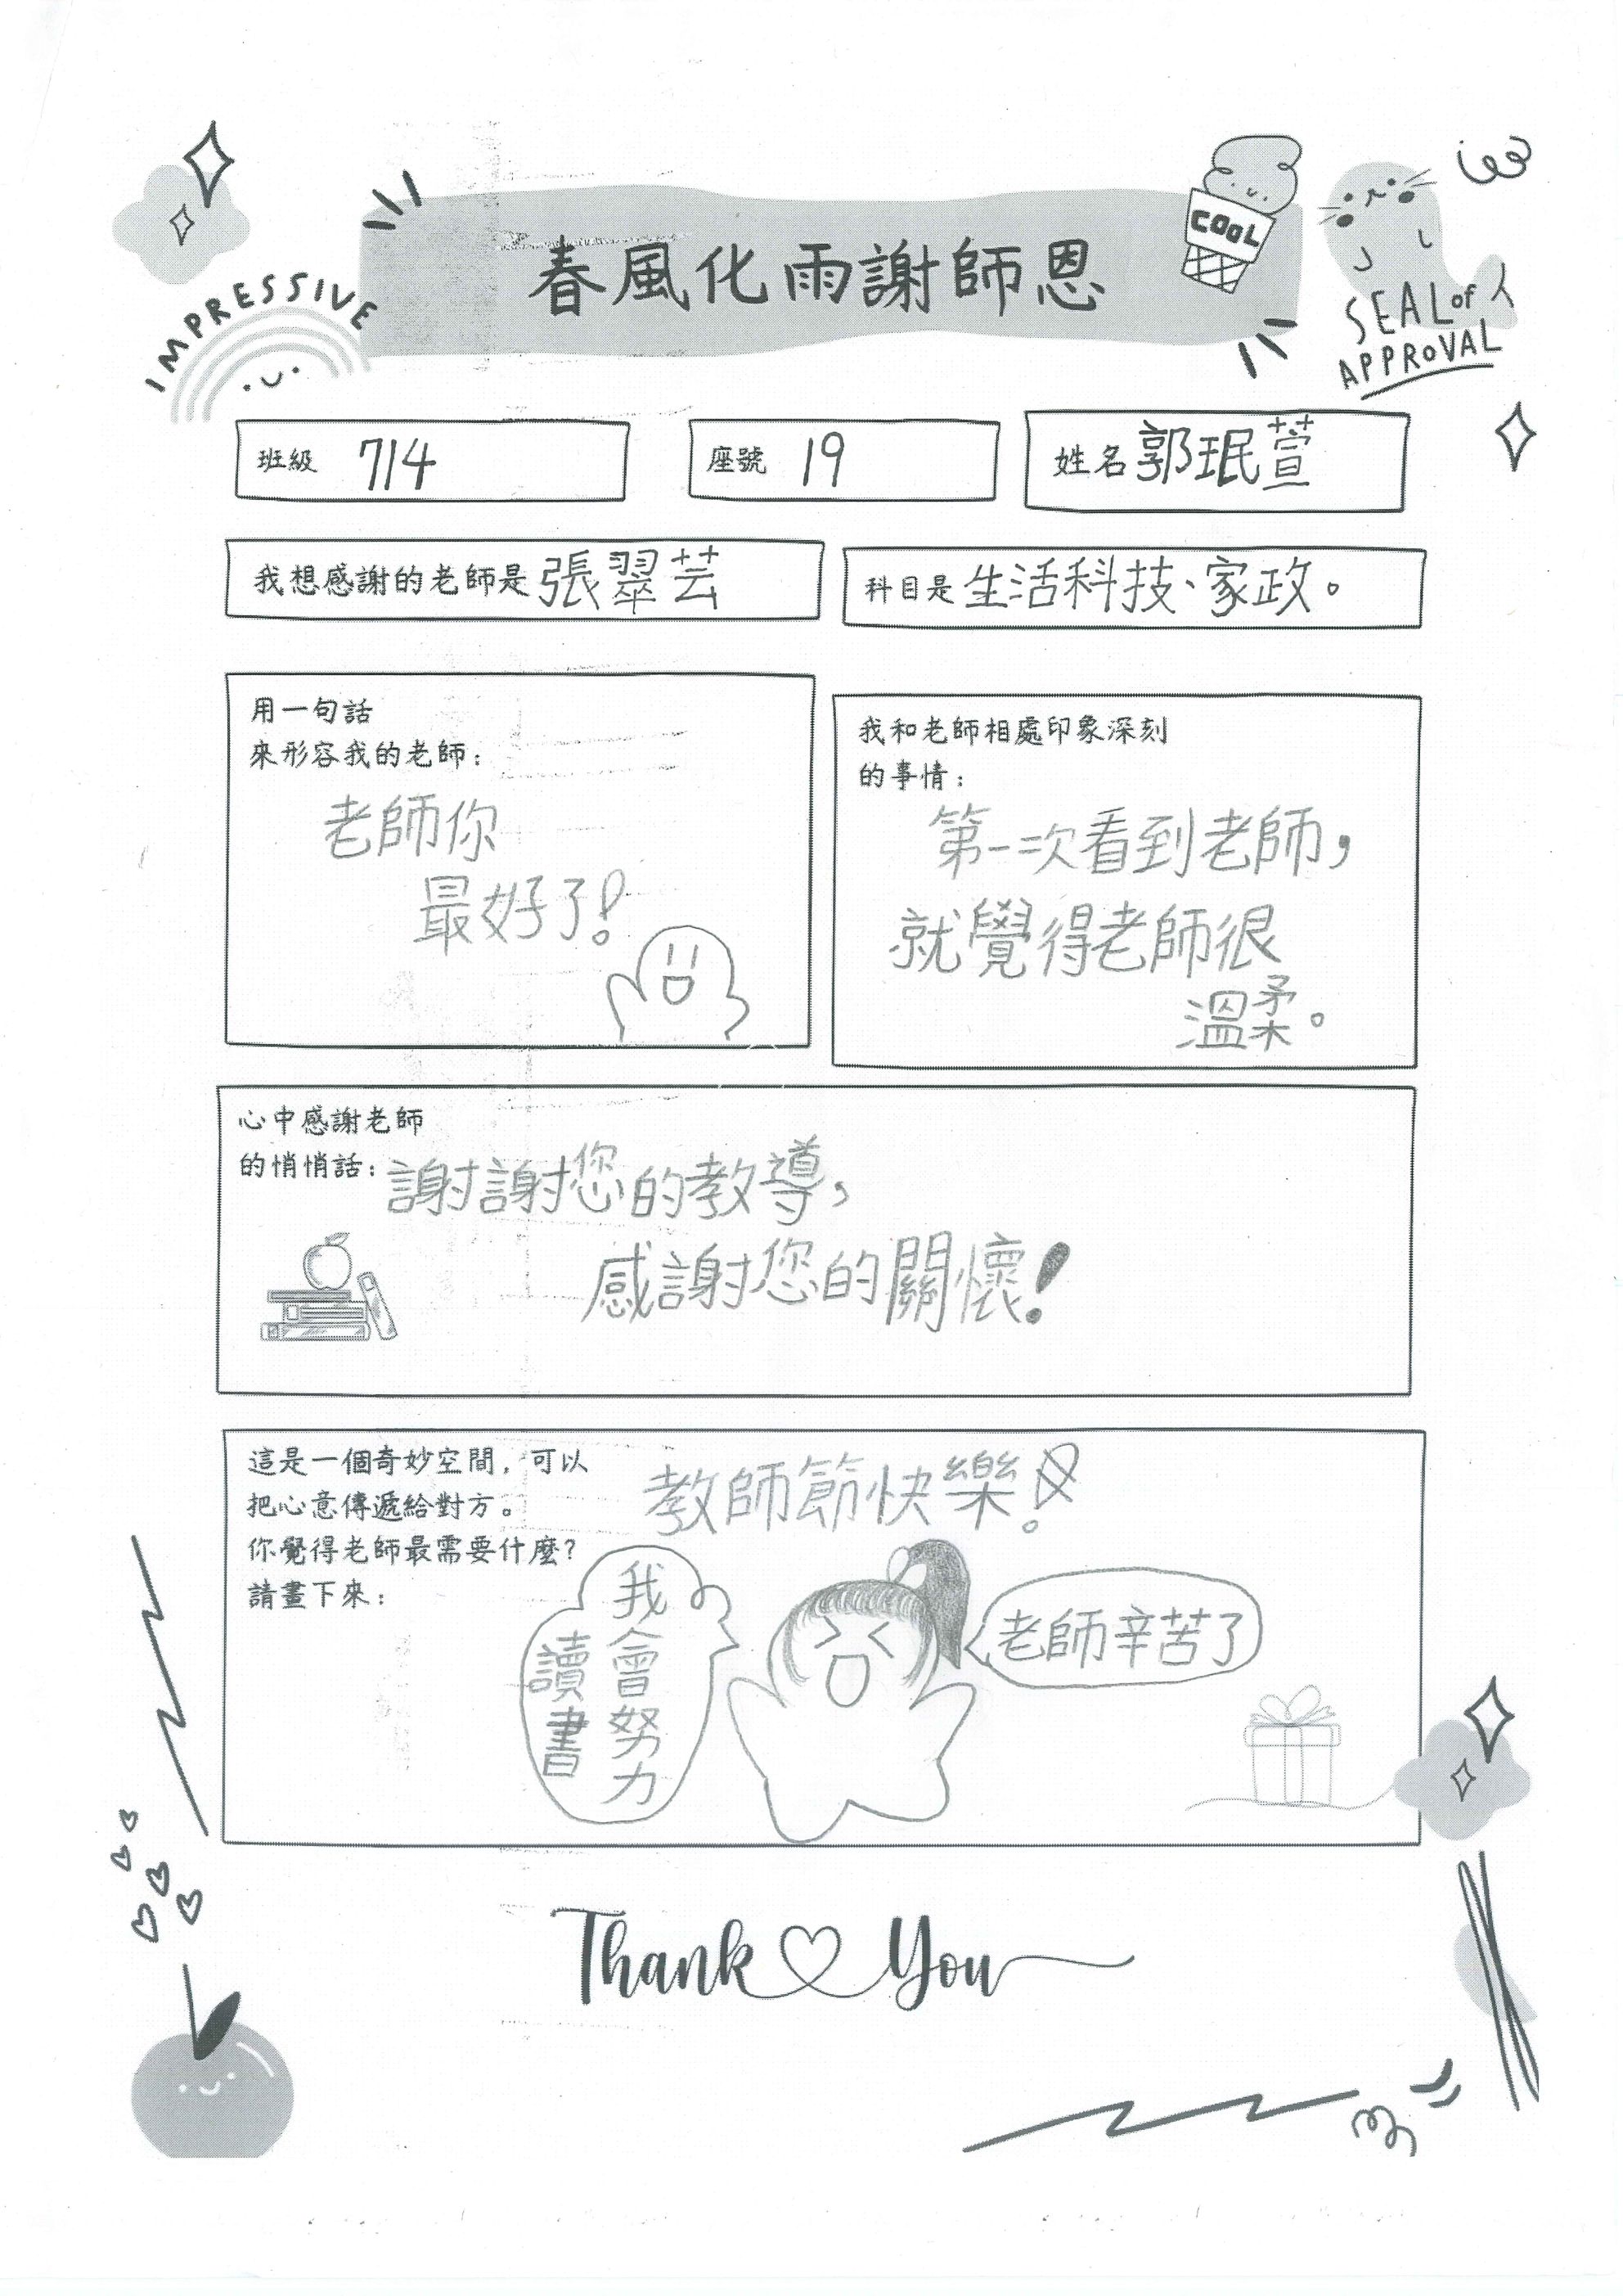 IMPRESSIVE
春風化雨謝師恩
COOL
SEAL of
APPROVAL
班級 714
座號 19
姓名 郭珉萱
我想感謝的老師是 張翠芸
科目是 生活科技、家政。
用一句話
來形容我的老師：
老師你
最好了！
我和老師相處印象深刻
的事情：
第一次看到老師，
就覺得老師很
溫柔。
心中感謝老師
的悄悄話：謝謝您的教導，
感謝您的關懷！
這是一個奇妙空間，可以
把心意傳遞給對方。
你覺得老師最需要什麼？
請畫下來：
教師節快樂！
我會努力
讀書
老師辛苦了
Thank You